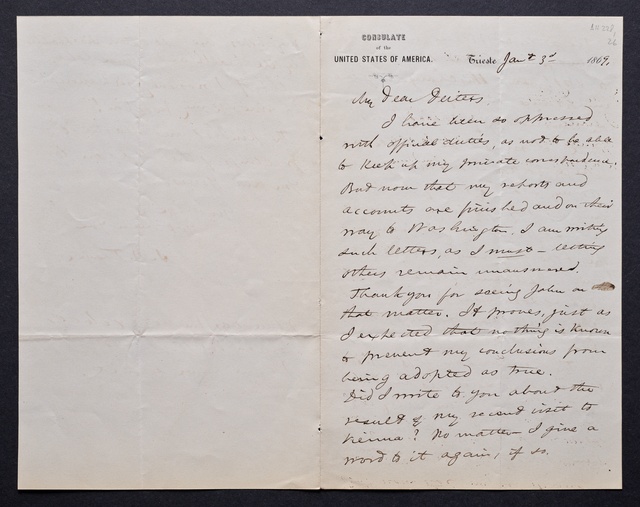 CONSULATE
of the
UNITED STATES OF AMERICA.
Trieste Jan't 3d 1869.
My Dear Deiters
I have been so oppressed
with official duties, as not to be able
to keep up my private correspondence.
But now that my reports and
accounts are finished and on their
way to Washington, I am writing
such letters, as I must – letting
others remain unanswered.
Thank you for seeing John on
that matter. It proves, just as
I expected that nothing is known
to prevent my conclusions from
being adopted as true.
Did I write to you about the
result of my recent visit to
Vienna? No matter – I give a
word to it again, if so.